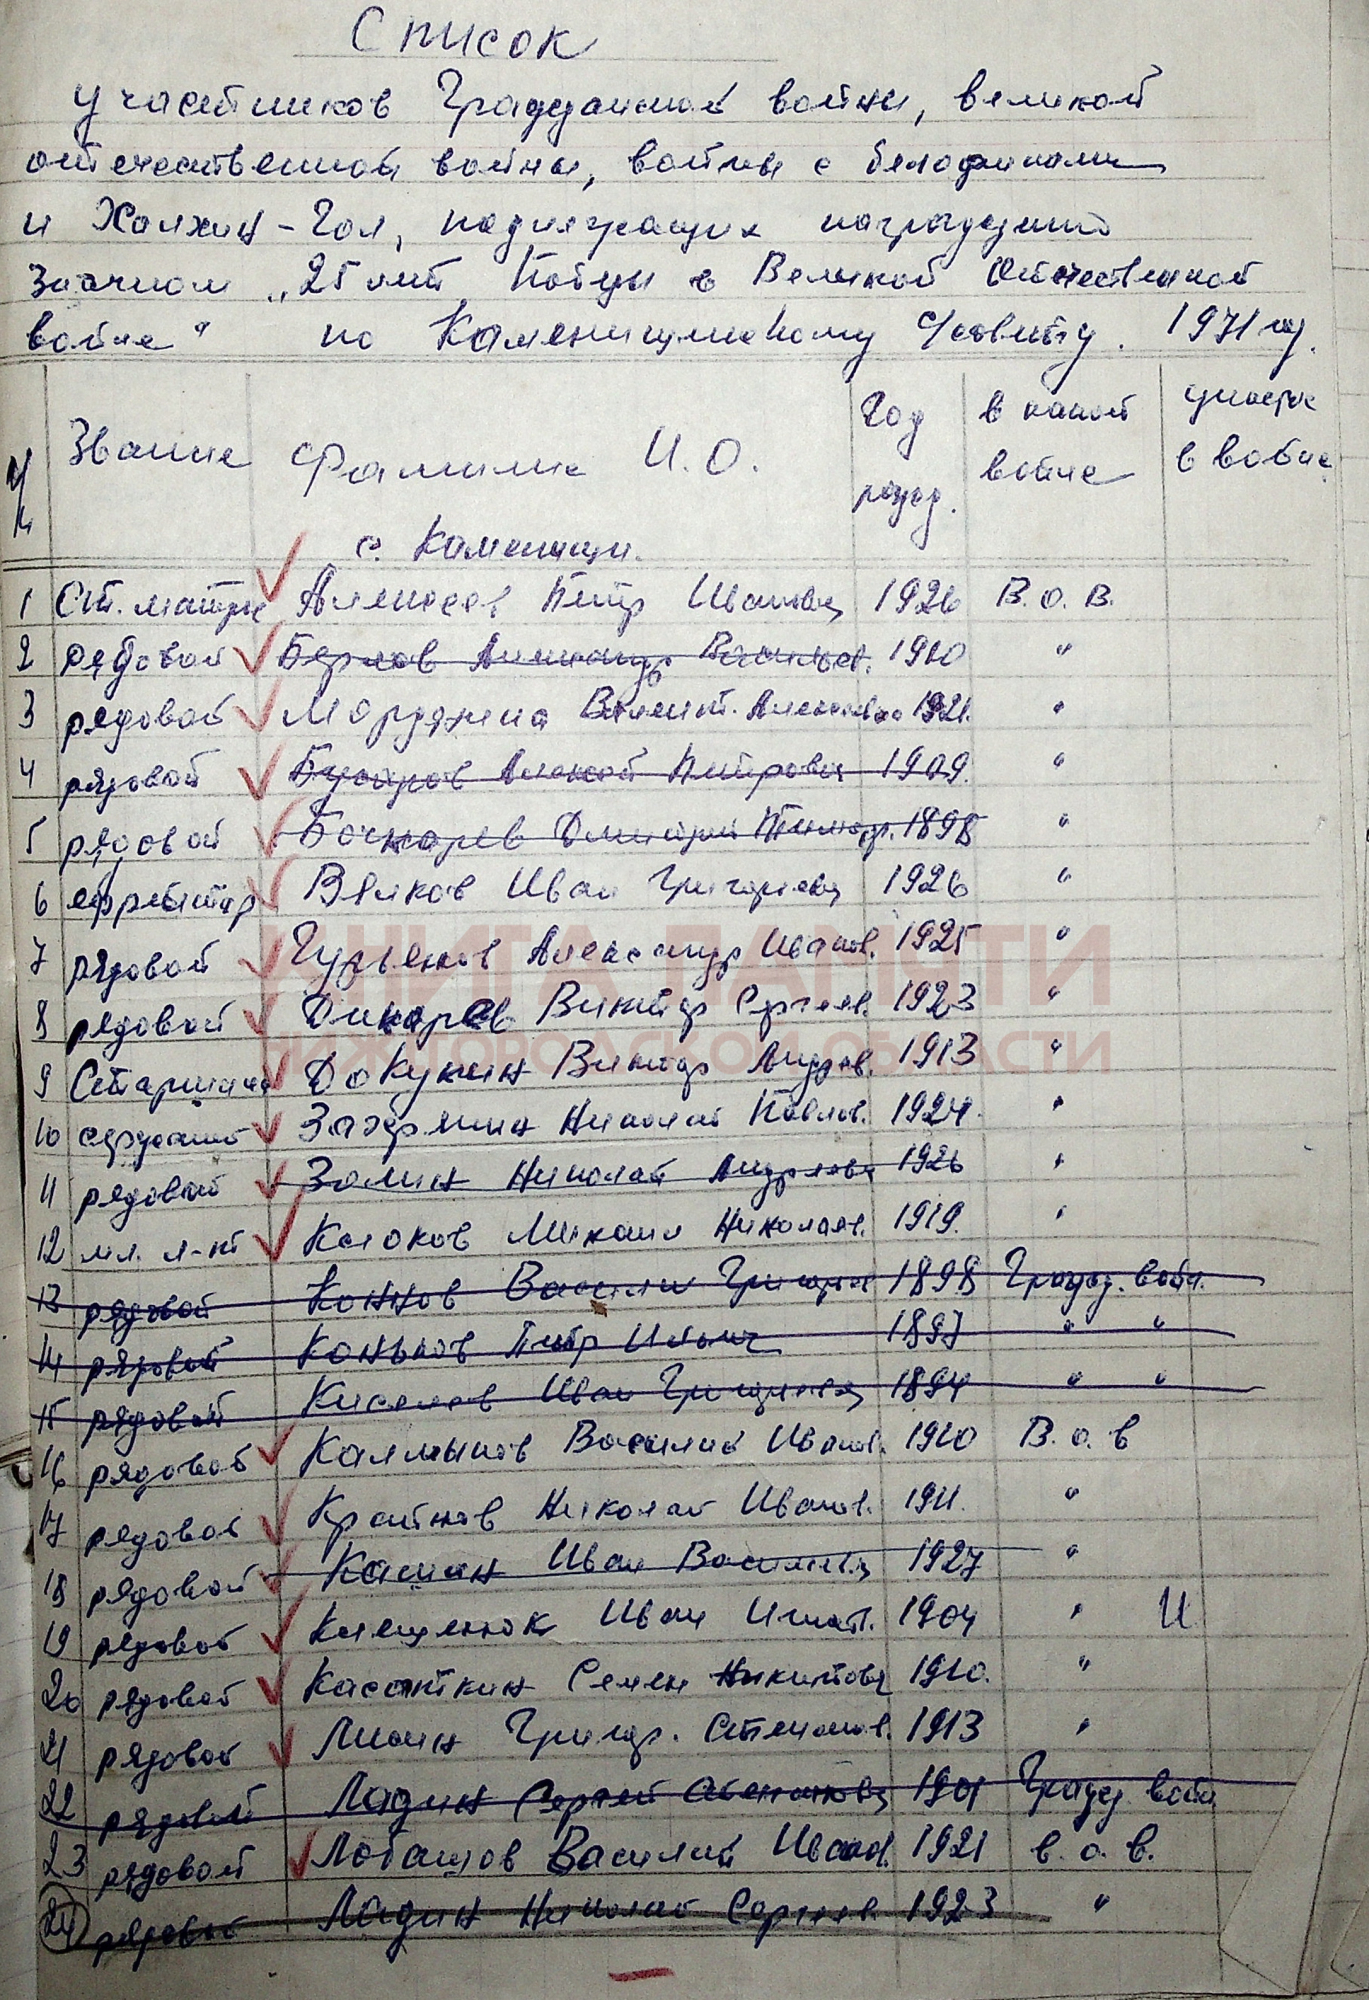 Список
участников Гражданской войны, великой
отечественной войны, войны с белофинами
и Халхин-Гол, подлежащих награждению
Значком „25 лет Победы в Великой Отечественной
войне" по Каменищенскому с/совету. 1971 г.
Звание Фамилие И.О. Год рожд. в какой войне участие в войне
с. Каменищи.
1 Ст. матрос Алексеев Петр Иванович 1926 В.О.В.
2 рядовой Александр Васильев. 1910 "
3 рядовой Валент. Алексеевна 1921. "
4 рядовой Алексей Петрович 1909. "
5 рядовой Бочкарев Дмитрий Тимоф. 1898 "
6 ефрейтор Вялков Иван Григорьевич 1926 "
7 рядовой Гурьенов Александр Иванов. 1925 "
8 рядовой Дикарев Виктор Сергеев. 1923 "
9 Старшина Докукин Виктор Андреев. 1913 "
10 сержант Николай Павлов. 1924. "
11 рядовой Залин Николай Андреевич 1926 "
12 мл. л-нт Клюков Михаил Николаев. 1919. "
13 рядовой Коннов Василий Григорьев 1898 Гражд. войн.
14 рядовой Коньков Петр Ильич 1897 " "
15 рядовой Киселев Иван Григорьевич 1894 " "
16 рядовой Калмыков Василий Иванов. 1910 В.О.В
17 рядовой Крайнов Николай Иванов. 1911. "
18 рядовой Кашин Иван Васильевич 1927 "
19 рядовой Клещенок Иван Игнат. 1904 " И
20 рядовой Касаткин Семен Никитович 1910. "
21 рядовой Григор. Степанов. 1913 "
22 рядовой Ладин Сергей 1901 Гражд. войн
23 рядовой Лобашов Василий Иванов. 1921 в.о.в.
24 рядовой Ладин Николай Сергеев. 1923 "
КНИГА ПАМЯТИ
НИЖЕГОРОДСКОЙ ОБЛАСТИ